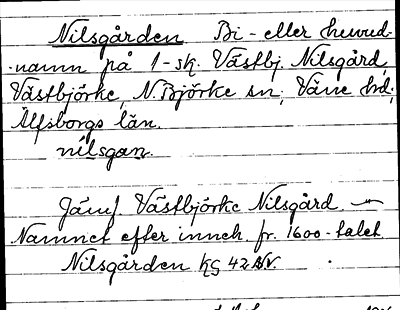 Nilsgården Bi- eller huvud-
namn på 1-sk. Västbj. Nilsgård,
Västbjörke, N. Björke sn, Väne hd,
Älfsborgs län.
nilsgan.
Jämf Västbjörke Nilsgård.
Namnet efter inneh. fr. 1600-talet
Nilsgården KG 42 NV.